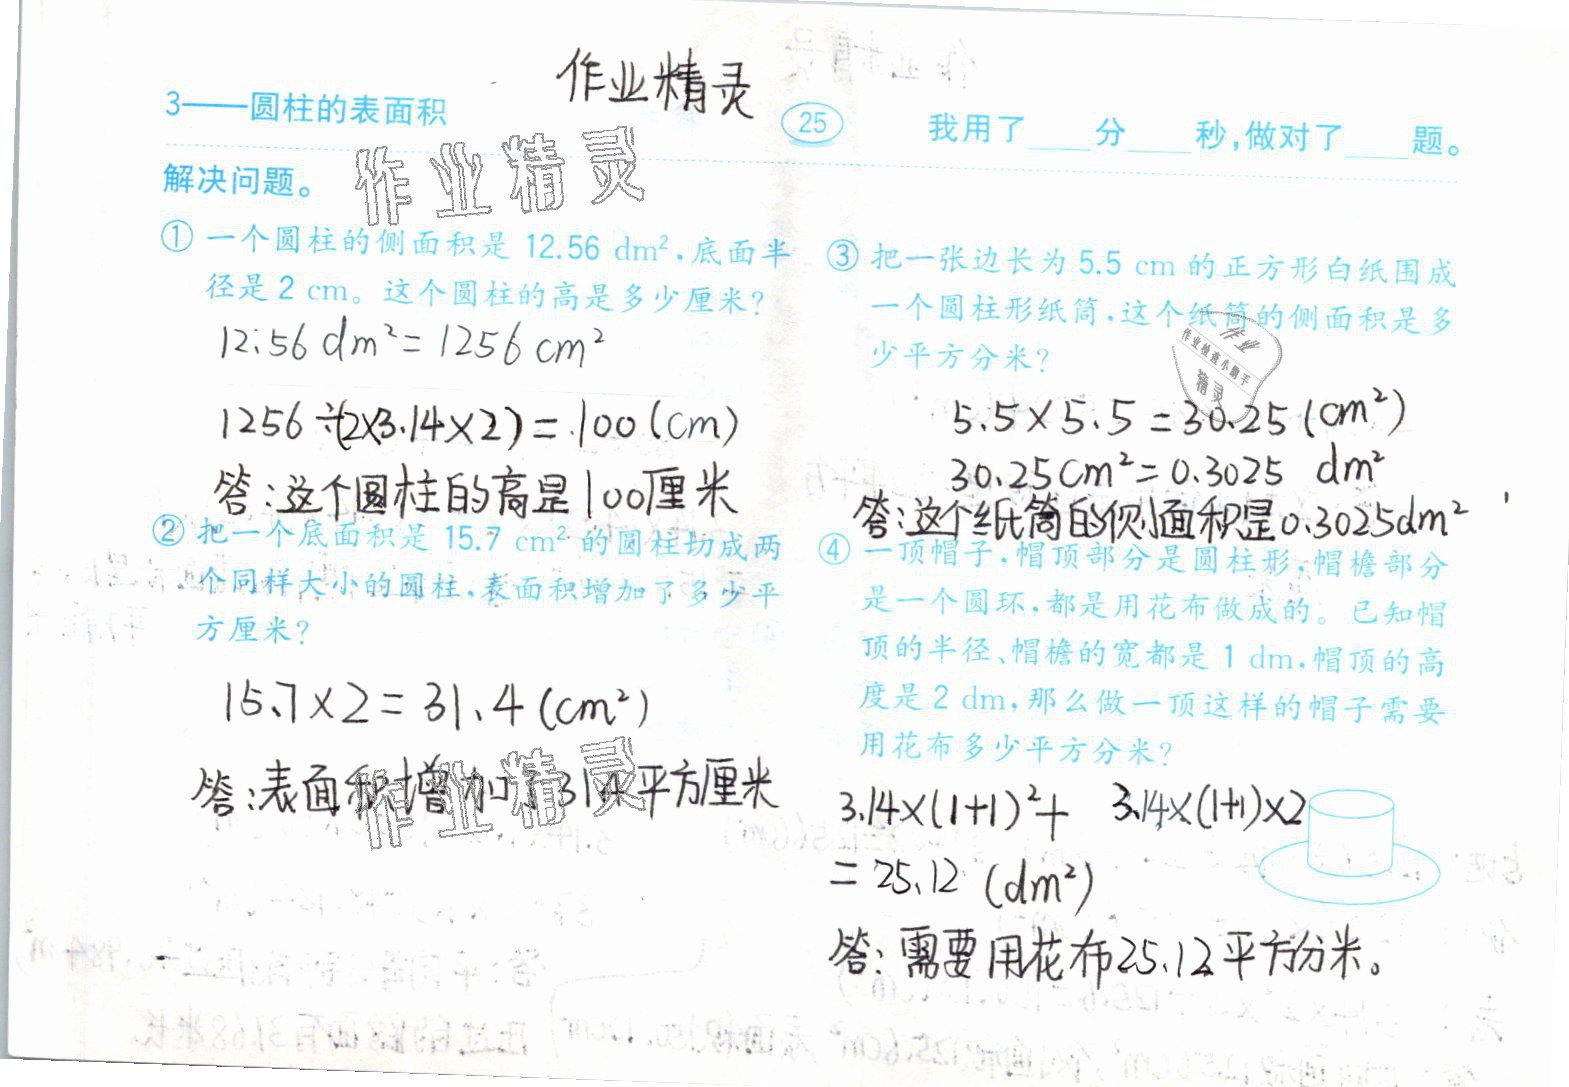 作业精灵
3——圆柱的表面积
25
我用了____分____秒,做对了____题。
解决问题。
作业精灵
① 一个圆柱的侧面积是 12.56 dm²,底面半
径是 2 cm。这个圆柱的高是多少厘米?
12.56 dm²=1256 cm²
1256÷(2×3.14×2)=100(cm)
答:这个圆柱的高是100厘米
② 把一个底面积是 15.7 cm² 的圆柱切成两
个同样大小的圆柱,表面积增加了多少平
方厘米?
15.7×2=31.4(cm²)
答:表面积增加了31.4平方厘米
作业精灵
③ 把一张边长为 5.5 cm 的正方形白纸围成
一个圆柱形纸筒,这个纸筒的侧面积是多
少平方分米?
作业
作业检查小助手
精灵
5.5×5.5=30.25(cm²)
30.25cm²=0.3025 dm²
答:这个纸筒的侧面积是0.3025dm²
④ 一顶帽子,帽顶部分是圆柱形,帽檐部分
是一个圆环,都是用花布做成的。已知帽
顶的半径、帽檐的宽都是 1 dm,帽顶的高
度是 2 dm,那么做一顶这样的帽子需要
用花布多少平方分米?
3.14×(1+1)²+ 3.14×(1+1)×2
=25.12 (dm²)
答:需要用花布25.12平方分米。